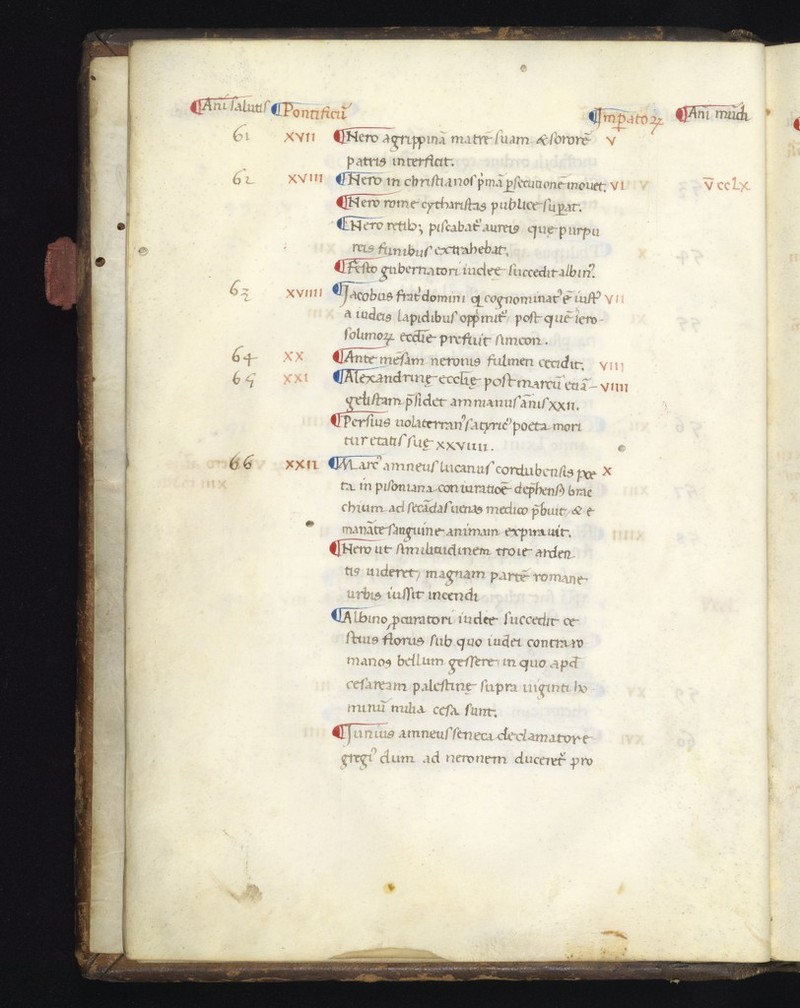 ¶Ani salutis ¶Pontificū ¶Impatoꝝ ¶Ani mūdi
61 XVII ¶Nero agrippinā matrē suam & sororē V
patris interficit.
62 XVIII ¶Nero in christianos pͥmā ꝑsecutionē mouet. VI V̄CCLX
¶Nero rome cytharistas publice suꝑat.
¶Nero retibꝫ piscabat᷑ aureis que purpu
reis funibus extrahebat.
¶Festo gubernatori iudeę succedit albinꝰ.
63 XVIIII ¶Jacobus frat᷑ domini qͥ cognominat᷑ ē iustꝰ VII
a iudeis lapidibus opp̄mit᷑, post quē iero-
solimoꝝ eccl̄ie prefuit simeon.
64 XX ¶Ante mēsam neronis fulmen cecidit. VIII
65 XXI ¶Alexandrinę eccl̄ię post marcū euā- VIIII
gelistam p̄sidet ammianus ānis XXII.
¶Persius uolaterranꝰ satyricꝰ poeta mori
tur etatis suę XXVIIII.
66 XXII ¶Marcꝰ amneus lucanus cordubensis poe X
ta in pisoniana coniuratiōe dep̄hensꝰ brac
chium ad secādas uenas medico p̄buit & e
manāte sanguine animam expirauit.
¶Nero ut similitudinem troię arden
tis uideret, magnam partē romane
urbis iussit incendi
¶Albino ꝓcuratori iudeę succedit ce
stius florus sub quo iudei contra ro
manos bellum gessere, in quo apđ
cesaream palestinę supra uiginti ho
minū milia cesa sunt.
¶Junius amneus seneca declamator e
gregiꝰ dum ad neronem duceret᷑ pro